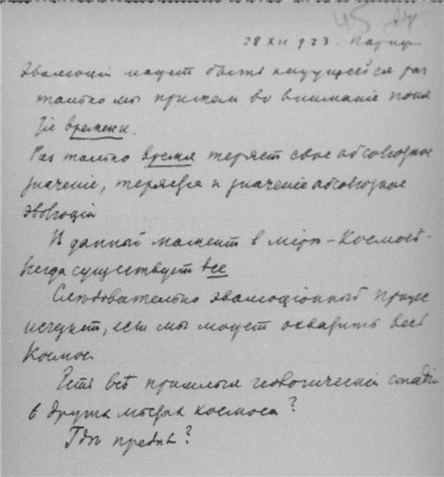 28 XII 923. Париж
Эволюція может быть кажущейся раз
только мы примем во вниманіе поня
тіе времени.
Раз только время теряет свое абсолютное
значение, теряется и значеніе абсолютное
эволюціи
В данный момент в міре-Космосе-
всегда существует все
Следовательно эволюціонный процес
исчезнет, если мы может охватить весь
Космос.
Есть все прошлыя геологическія стадіи
в других местах космоса?
Где предел?